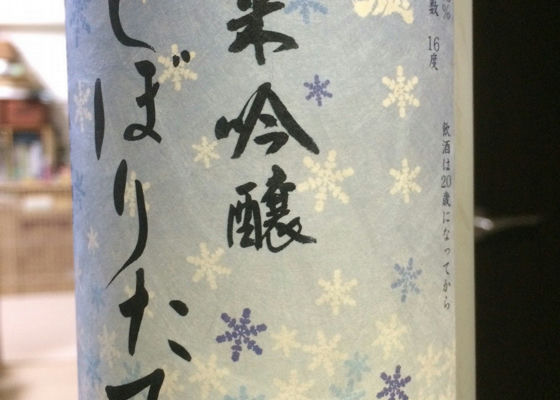 %
数 16度
飲酒は20歳になってから
米吟醸
しぼりたて